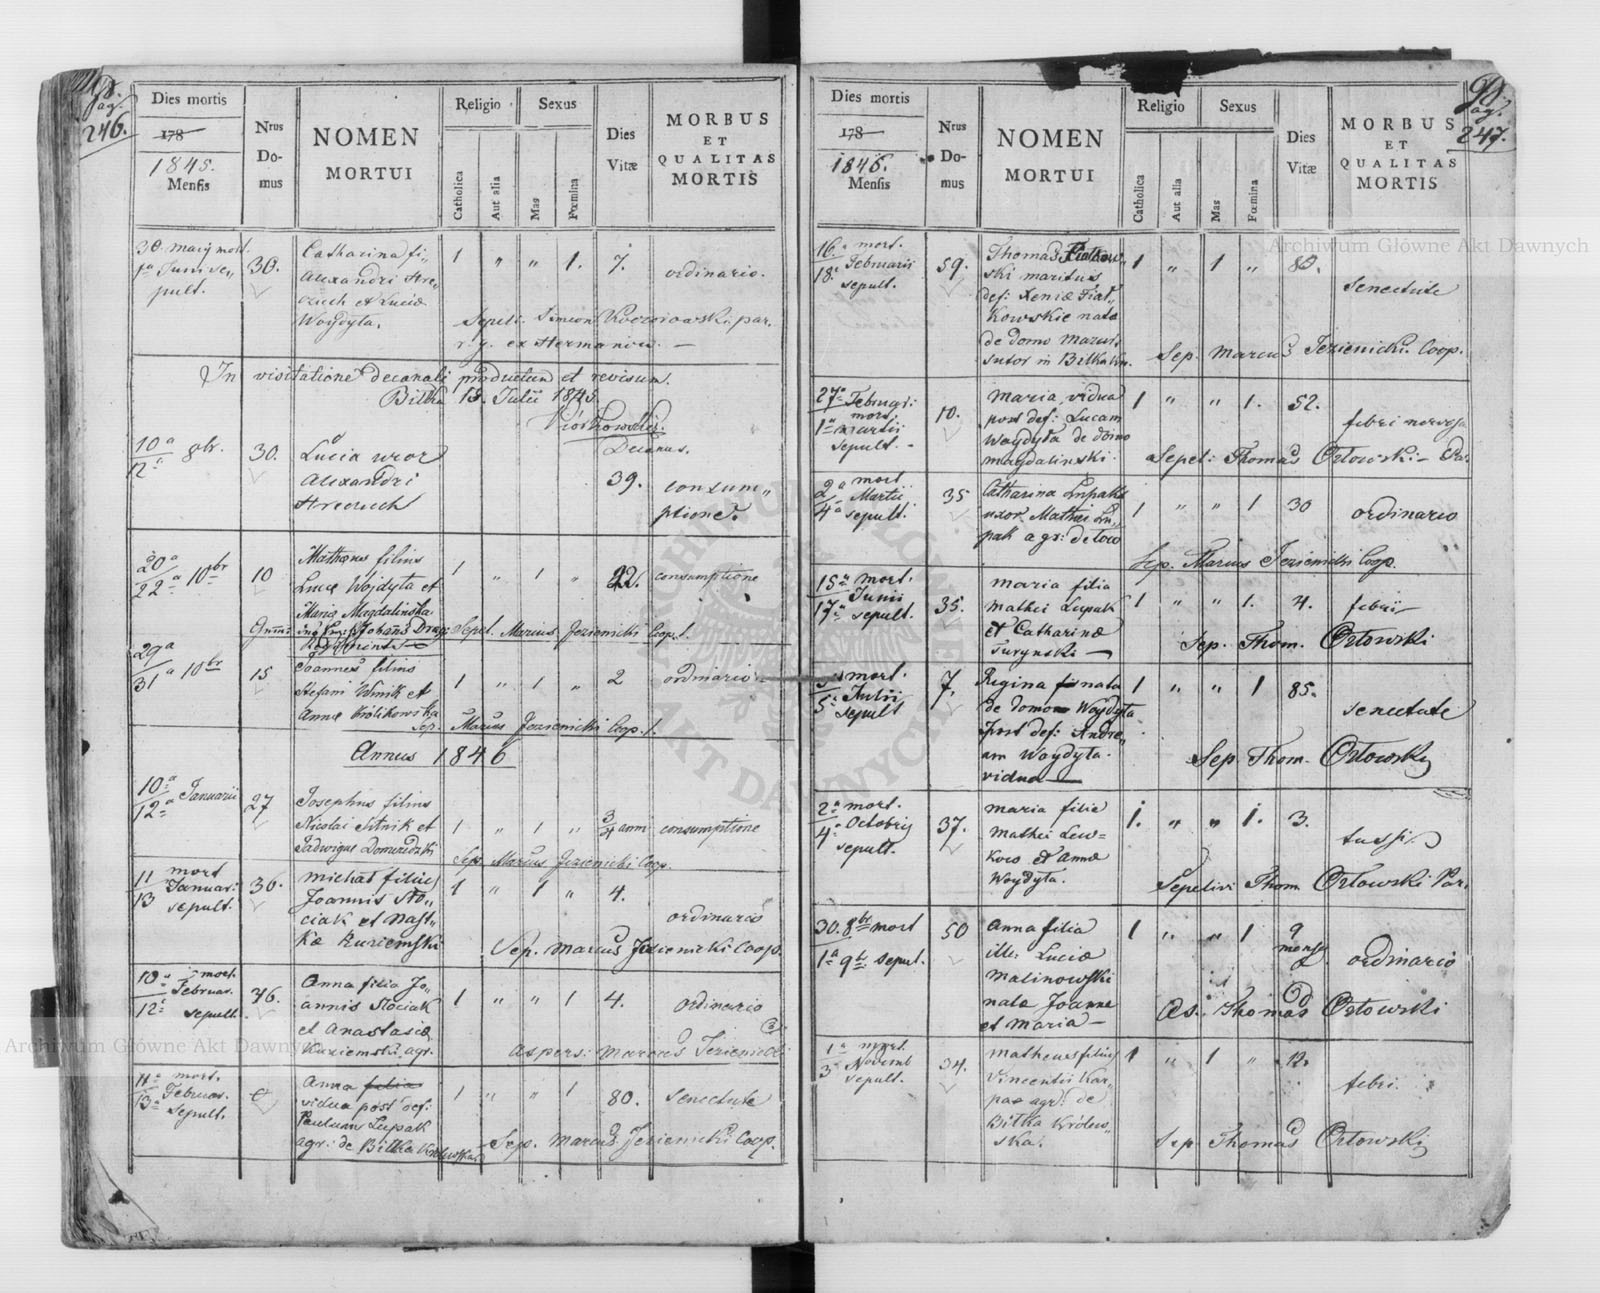 Pag.
246.
Dies mortis
178
1845.
Mensis
Nrus
Do-
mus
NOMEN
MORTUI
Religio
Catholica
Aut alia
Sexus
Mas
Fœmina
Dies
Vitæ
MORBUS
ET
QUALITAS
MORTIS
30. Maij mort.
1a Juni se„
pult.
30.
Catharina fi„
Alexandri
et Lucia
Woydyta.
1 „ „ 1. 7. ordinario.
Sepeli: Simeon par.
r. g. ex
In visitatione decanali productum et revisum.
Bilka 13. Julii 1845.
Decanus.
10a
12a 8br.
30.
Lucia uxor
Alexandri
39. consum„
ptione.
20a
22a 10br
10
Mathæus filius
Lucæ Wojdyta et
Maria Magdalińska
1 „ 1 „ 22. consumptione
Sepel. Marcus Jezienicki Coop.
29a
31a 10br
15
Joannes filius
Stefani Winik et
Annæ Królikowska
1 „ 1 „ 2 ordinario
Sep. Marcus Jezienicki Coop.
Annus 1846
10a
12a Januarii
27
Josephus filius
Nicolai Sitnik et
Jadwigæ
1 „ 1 „ 3/4 anni consumptione
Sep. Marcus Jezienicki Coop.
11 mort
13 Januar:
sepult.
36.
Michał filius
Joannis Sto„
ciak et Nast„
Kæ Kuziemski
1 „ 1 „ 4.
ordinario
Sep. Marcus Jezienicki Coop.
10a mort.
12a Februar.
sepult
76.
Anna filia Jo„
annis Stociak
et Anastasiæ
Kuziemski, agr.
1 „ „ 1 4. ordinario
Aspersi: Marcus Jezienicki
11a mort.
13a Februar.
sepult.
Anna filia
vidua post def:
Łupak
agr: de Bilka Krolewska
1 „ „ 1 80. senectute
Sep. Marcus Jezienicki Coop.
Pag.
247.
Dies mortis
178
1846.
Mensis
Nrus
Do-
mus
NOMEN
MORTUI
Religio
Catholica
Aut alia
Sexus
Mas
Fœmina
Dies
Vitæ
MORBUS
ET
QUALITAS
MORTIS
16.a mort.
18.a Februarii
sepult.
59.
Thomas Fiatkow„
ski maritus
def: Xeniæ Fiat„
kowskie nata
de domo Mazur.
Sutor in Bilka
1 „ 1 „ 80.
senectute
Sep. Marcus Jezienicki. Coop.
27a Februari:
mort.
1a Martii
sepult.
10.
Maria, vidua
post def: Lucam
Woydyta de domo
Magdalinski.
1 „ „ 1. 52.
febri nervosa
Sepeli: Thomas Ortowski Par.
2a mort
4a Martii
sepult.
35
Catharina Łupak
uxor Mathei Łu„
pak agr:
1 „ „ 1 30
ordinario
Sep. Marcus Jezienicki Coop.
15a mort.
17a Junii
sepult.
35.
Maria filia
Mathei Łupak
et Catharinæ
Turynski
1 „ „ 1. 4. febri
Sep. Thom. Ortowski
mort.
5a Julii
sepult
7.
Regina nata
de domo Woydyta
post def: Andre„
am Woydyta.
vidua
1 „ „ 1 85.
senectute
Sep Thom. Ortowski
2a mort.
4a Octobrij
sepult.
37.
Maria filia
Mathei Lew=
kow et Anna
Woydyta.
1. „ „ 1. 3.
tussi
Sepelivi Thom. Ortowski Par.
30. 8br mort
1a 9br sepul.
50
Anna filia
ille: Lucia
Malinowski
nata Joanne
et Maria
1 „ „ 1 9
mens
ordinario
As. Thomas Ortowski
1a mort.
3a Novemb
sepult.
34.
Matheus filius
Vincentii Kar„
pa agr: de
Bilka Królew„
ska.
1 „ 1 „ 12.
febri.
Sep Thomas Ortowski
Archiwum Główne Akt Dawnych
Archiwum Główne Akt Dawnych
ARCHIWUM GŁÓWNE AKT DAWNYCH